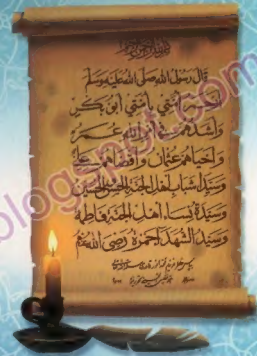 قال رسول الله صلى الله عليه وسلم
أرحم أمتي بأمتي أبو بكر
وأشدهم في أمر الله عمر
وأحياهم عثمان وأقضاهم علي
وسيدا شباب أهل الجنة الحسن والحسين
وسيدة نساء أهل الجنة فاطمة
وسيد الشهداء حمزة رضي الله عنهم
blogspot.com